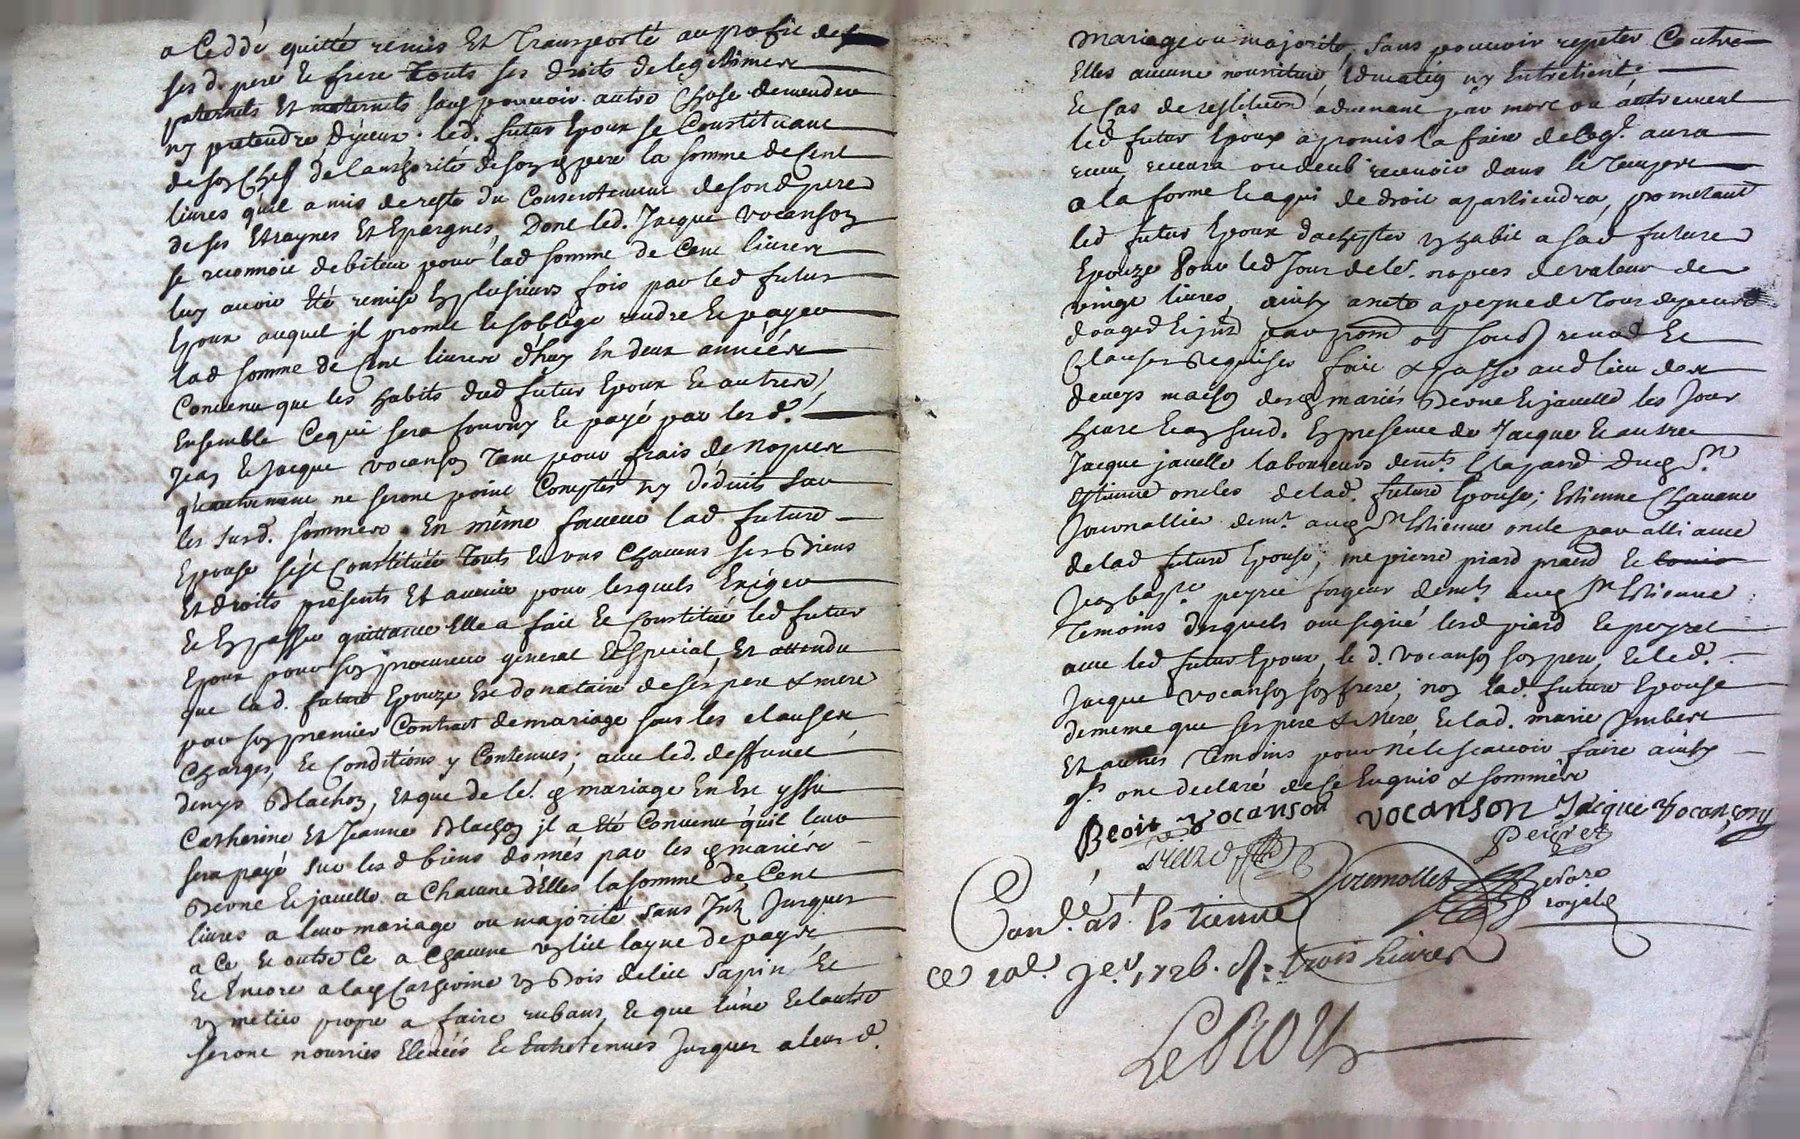 a ceddé quitté remis Et Transporté au profit desd
sesd. pere et frere touts ses droits de legitimes
paternels Et maternels sans pouvoir autre chose demander
ny pretendre d'yceux. led. futur Epoux se Constituant
de son chef de lauthorité de sond pere la somme de Cent
livres qu'il a mis de reste du Consentement de sond pere
de ses Etraynes Et Epargnes, Dont led. Jacque vocanson
se reconnoit debiteur pour lad somme de Cent livres
luy avoir été remise En plusieurs fois par led futur
Epoux auquel jl promet et s'oblige rendre Et payer
lad somme de Cent livres d'huy En deux années
Convenu que les habits dud futur Epoux Et autres
Ensemble Ce qui sera fourny Et payé par les d.
Jean Et Jacque vocanson tant pour frais de nopces
qu'autrement ne seront point Comptés ny deduits sur
les susd. sommes. En même faveur lad future
Epouse s'est Constituée touts Et uns chacuns ses Biens
Et droits presents Et avenir pour lesquels Exiger
Et En passer quittance Elle a fait Et Constitué led futur
Epoux pour son procureur general Et special, Et attendu
que la d. future Epouze Est donataire de ses pere & mere
par son premier Contract de mariage sous les clauses
Charges, Et Conditions y Contenues; avec led. deffunct
denys Blachon, Et que de led. mariage En Est yssu
Catherine Et Jeanne Blachon jl a été Convenu qu'il leur
sera payé sur lesd biens donnés par lesd mariés
Beone Et javelle a Chacune d'Elles la somme de Cent
livres a leur mariage ou majorité sans Jnt. Jusques
a Ce, Et outre Ce a Chacune un lict layne de pays,
Et Encore a lad Catherine un Bois de lict Sapin Et
un metier propre a faire rubans, Et que l'une Et l'autre
seront nourries Elevées Et Entretenues Jusques a leurd.
mariage ou majorité, sans pouvoir repeter Contre
Elles aucune nourriture Education ny Entretient.
Et Cas de restitution advenant par mort ou autrement
led futur Epoux a promis la faire de Ce q. aura
receu, recevra ou deub recevoir dans le Temps
a la forme Et a qui de droit apartiendra, prometant
led futur Epoux d'achepter un habit a sad future
Epouze pour led Jour de led. nopces de valeur de
vingt livres, ainsy areté a peyne de tous depens
domages Et jnts par prom ob soub renod Et
Clauses Requises fait & passé aud lieu de
denys maison desd mariés Beone Et javelle les Jour
heure Et an susd. En presence de Jacque Et autre
Jacque javelle laboureurs demts Estapand dud St
Estienne oncles de lad. future Epouse; Estienne Chavane
Journallier demt. aud St Estienne oncle par alliance
de lad future Epouse; me pierre piard praed Et
Jean bapte. peyret forgeur demt. aud St Estienne
Temoins desquels ont signé lesd piard Et peyret
avec led futur Epoux, le d. vocanson son pere, Et le d.
Jacque vocanson son frere, non lad. future Epouse
de meme que ses pere & Mere, Et lad. marie Jmbert
Et autres Temoins pour ne le scavoir faire ainsy
qls. ont declaré de Ce Enquis & sommés
Benoit Vocanson vocanson Jacque Vocanson
Piard Peyret
royal
Conlé. a St. Estienne
ce 10e. Jer. 1726. R: trois livres
LeROU